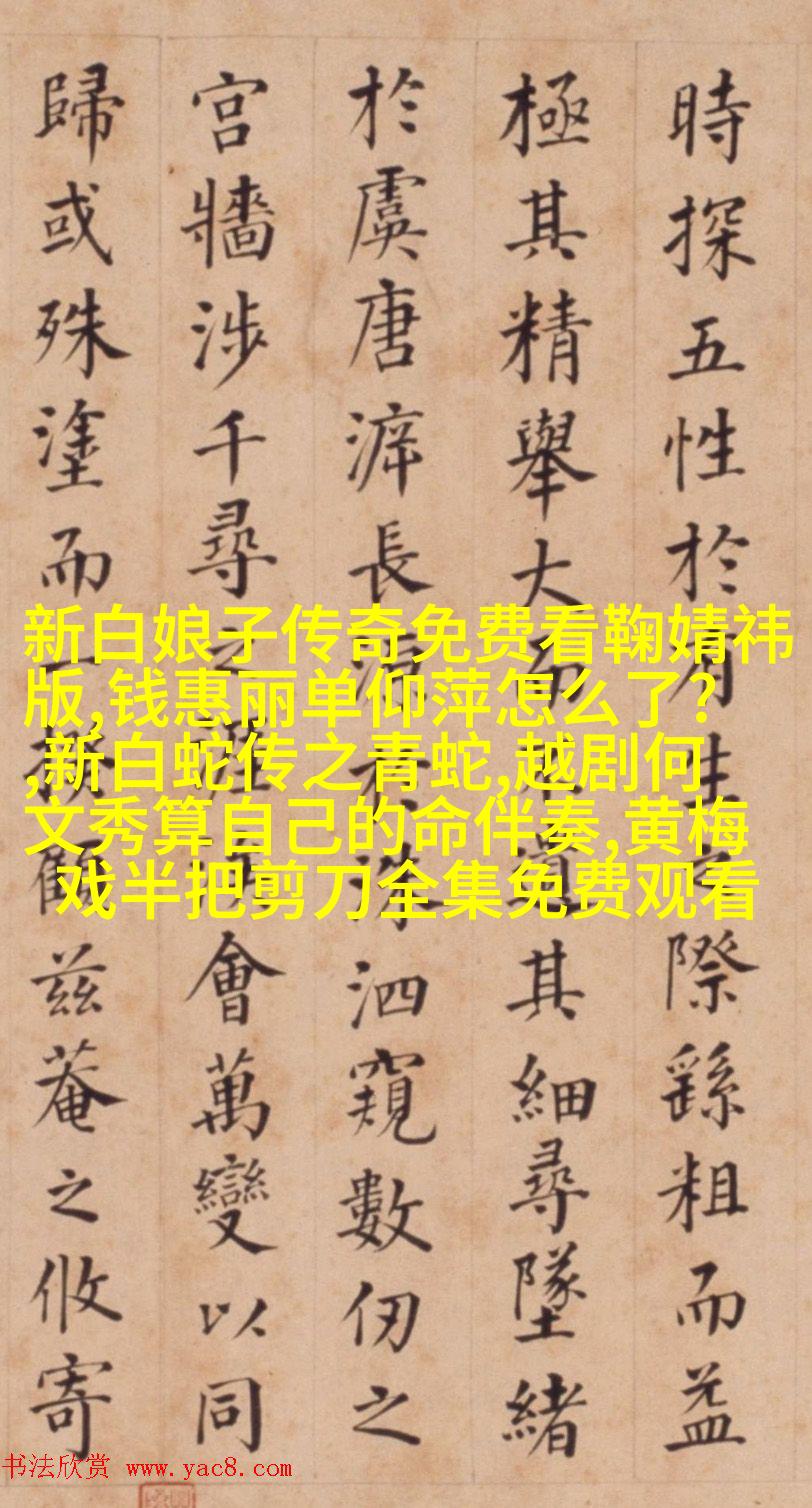 時探五性於有生之際繇粗而益
極其精舉大而不遺其細尋墜緒
於虞唐泝長源於洙泗窺數仞之
宮牆涉千尋之會萬變以同
歸或殊塗而一揆顧茲菴之攸寄
新白娘子传奇免费看鞠婧祎
版,钱惠丽单仰萍怎么了?
,新白蛇传之青蛇,越剧何
文秀算自己的命伴奏,黄梅
戏半把剪刀全集免费观看
书法欣赏 www.yac8.com